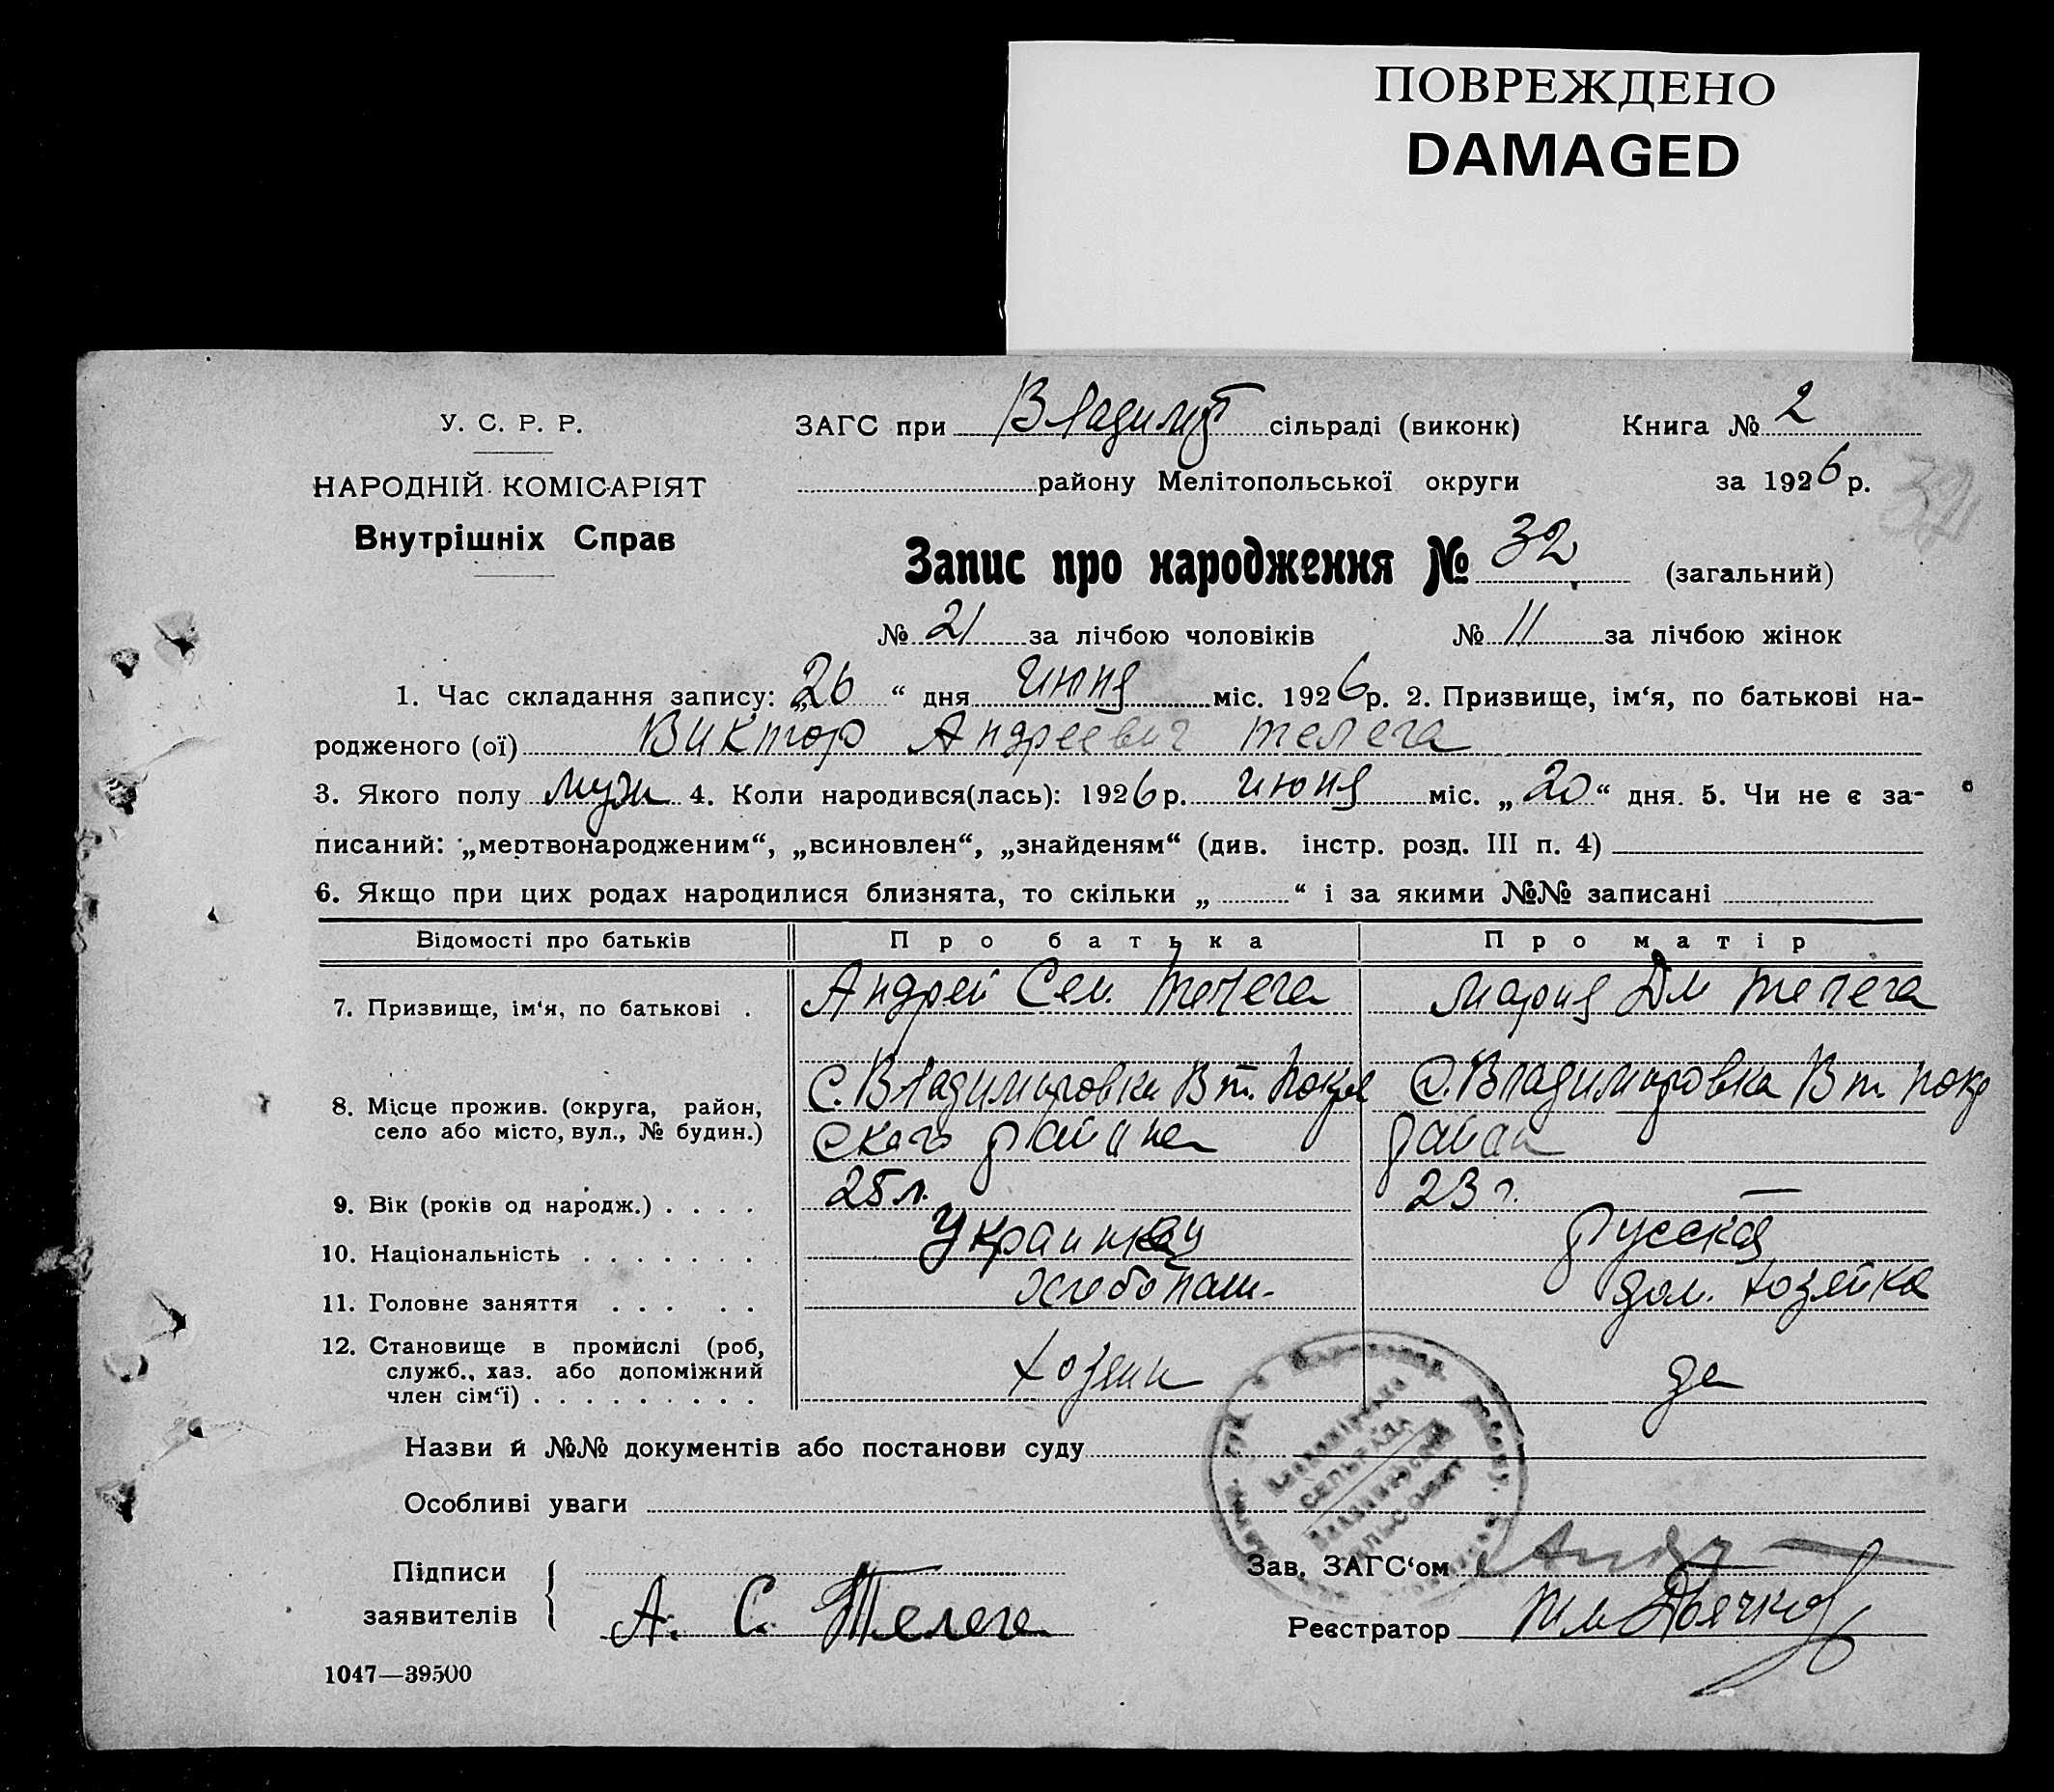 ПОВРЕЖДЕНО
DAMAGED
У. С. Р. Р.
ЗАГС при Владимр сільраді (виконк) Книга № 2
НАРОДНІЙ КОМІСАРІЯТ
району Мелітопольської округи за 1926 р.
32
Внутрішніх Справ
Запис про народження № 32 (загальний)
№ 21 за лічбою чоловіків № 11 за лічбою жінок
1. Час складання запису: „26“ дня июня міс. 1926 р. 2. Призвище, ім‘я, по батькові на-
родженого (ої) Виктор Андреевич Телега
3. Якого полу муж 4. Коли народився(лась): 1926 р. июня міс. „20“ дня. 5. Чи не є за-
писаний: „мертвонародженим“, „всиновлен“, „знайденям“ (див. інстр. розд. III п. 4)
6. Якщо при цих родах народилися близнята, то скільки „ “ і за якими №№ записані
Відомості про батьків Про батька Про матір
7. Призвище, ім‘я, по батькові . Андрей Сем. Телега Мария Дм Телега
8. Місце прожив. (округа, район, С. Владимировка В т. Покр С. Владимировка В т. Покр
село або місто, вул., № будин.) ского района район
9. Вік (років од народж.) . . . . 25 л. 23 г.
10. Національність . . . . . . . Украинец Русская
11. Головне заняття . . . . . Хлебопаш. дом. хозяйка
12. Становище в промислі (роб,
служб., хаз. або допоміжний Хозяин да
член сім‘ї) . . . . . . . . .
Назви й №№ документів або постанови суду
Особливі уваги
СЕЛЬРАДА
Підписи
заявителів А. С. Телега
Зав. ЗАГС‘ом
Реєстратор Дьячков
1047—39500